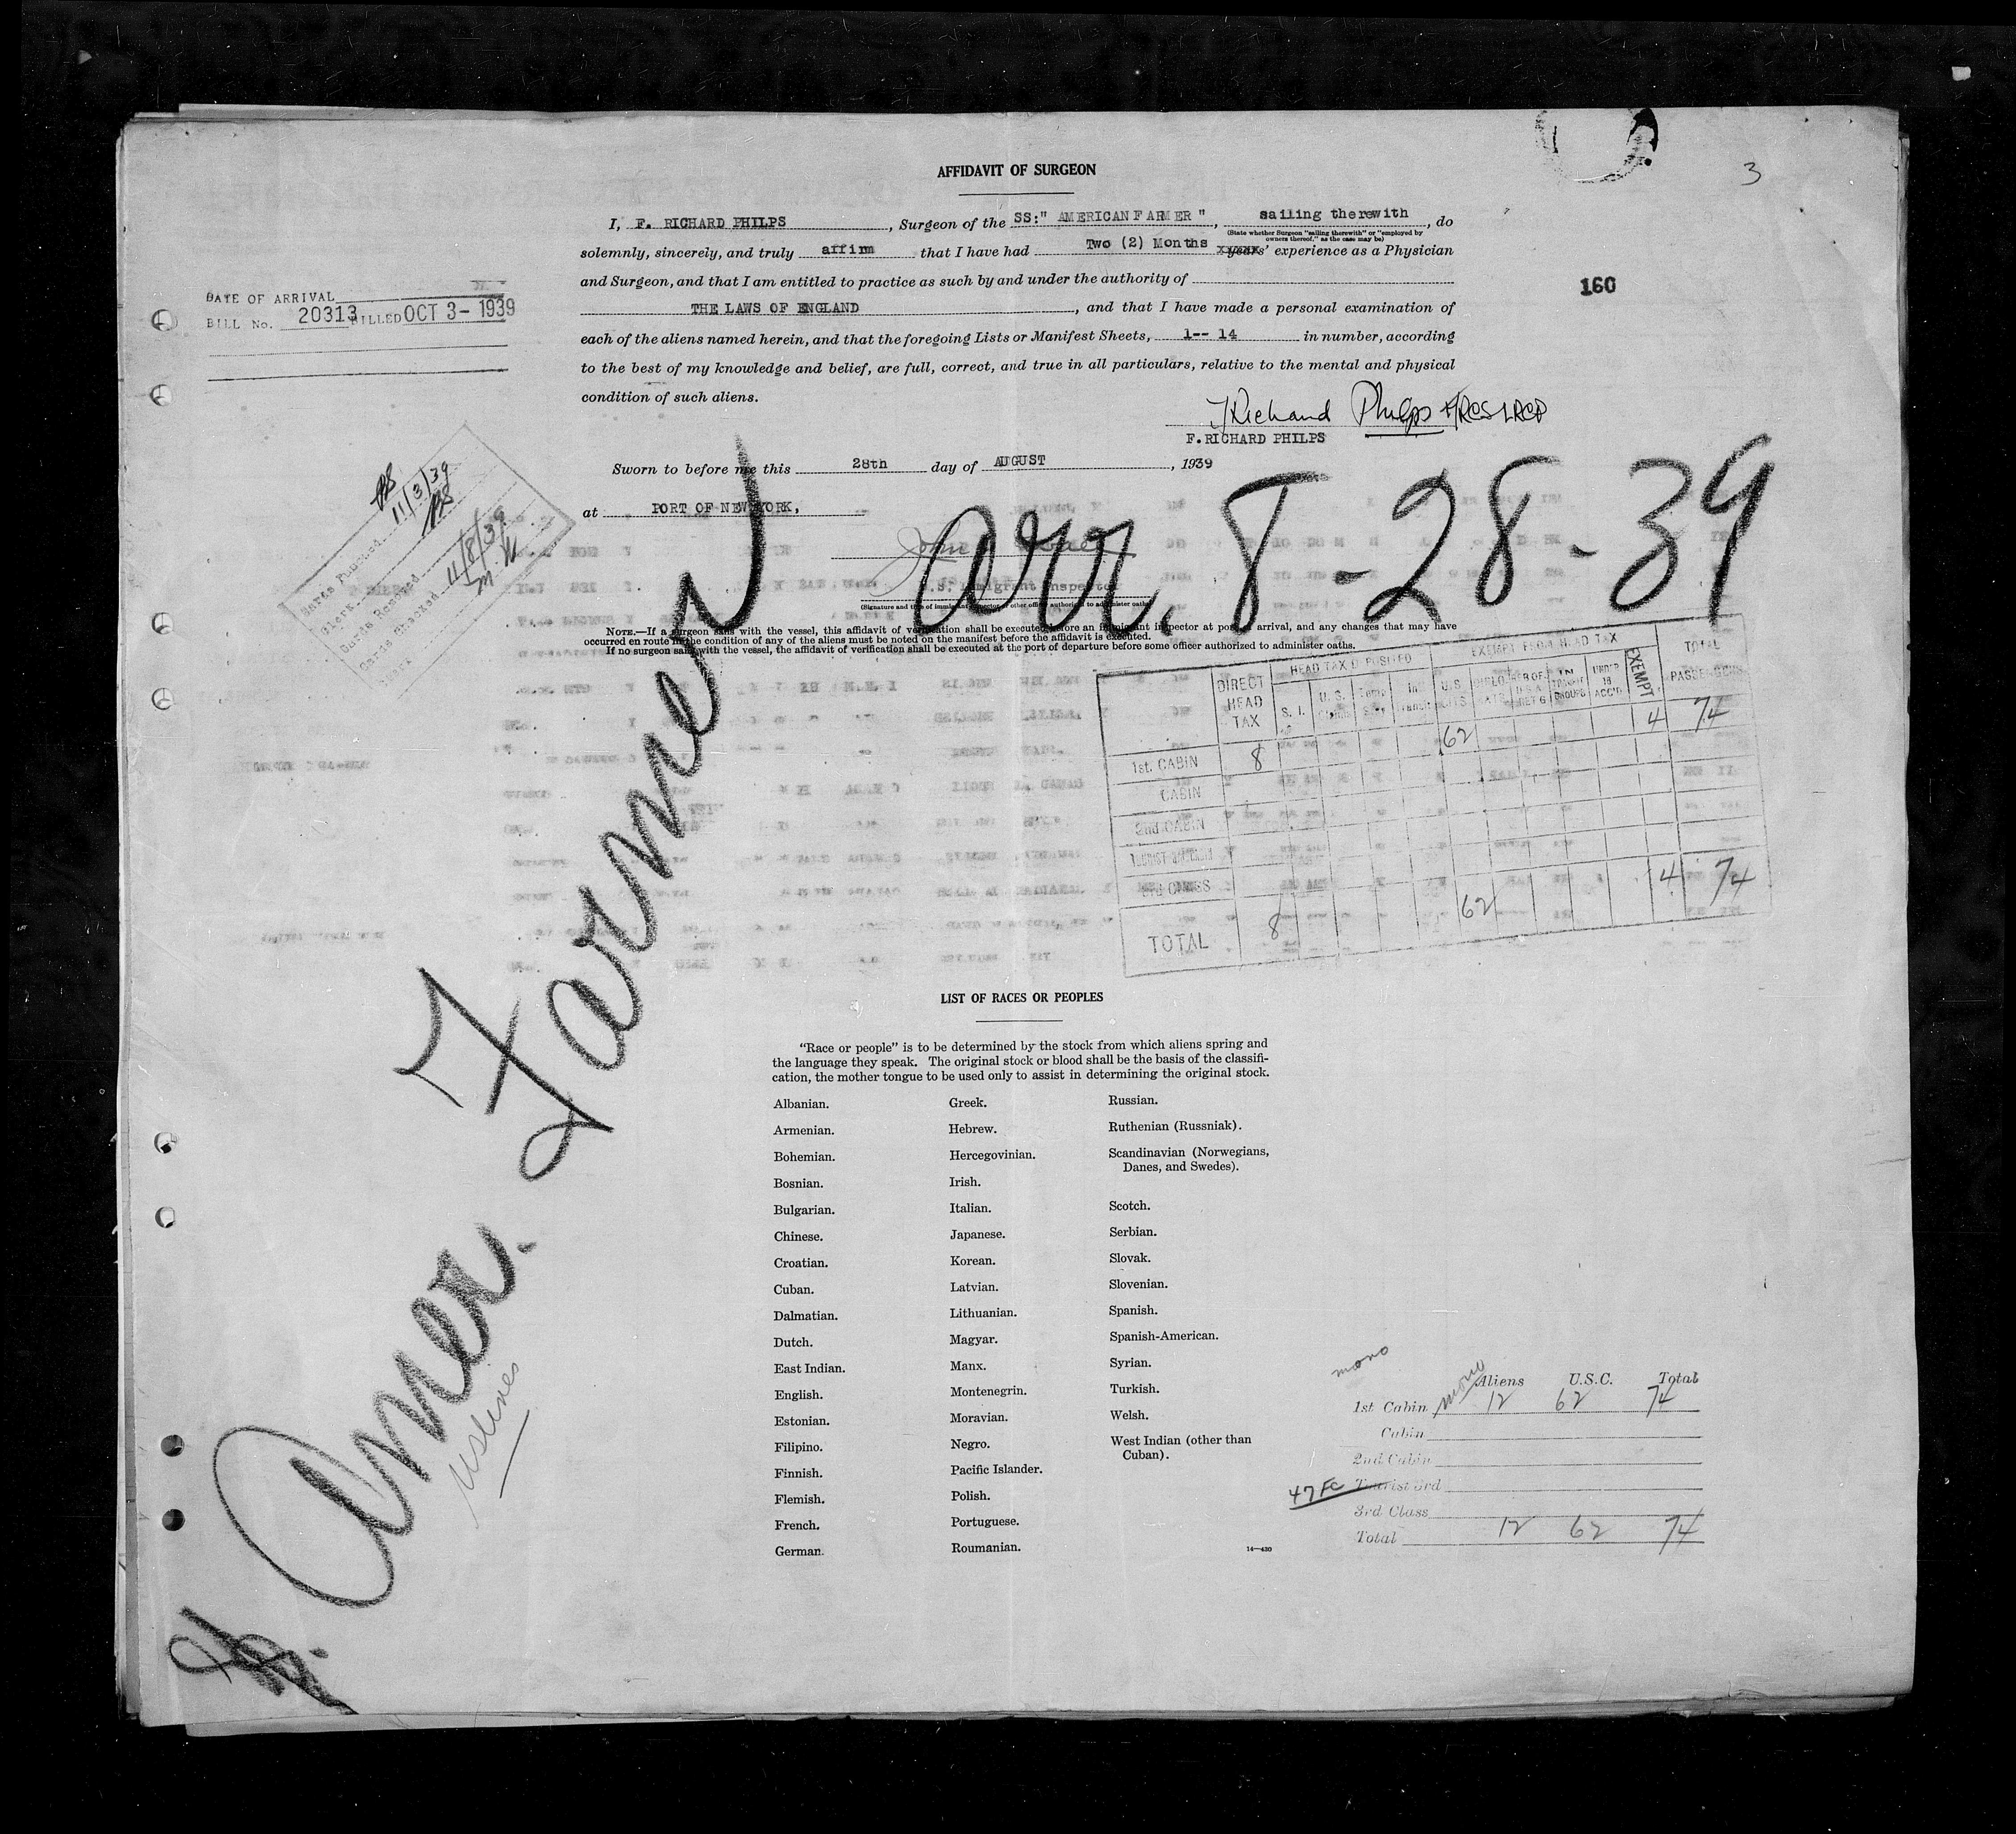 AFFIDAVIT OF SURGEON
3
I, F. RICHARD PHILPS, Surgeon of the SS:" AMERICAN FARMER ", sailing therewith, do
(State whether Surgeon "sailing therewith" or "employed by
owners thereof," as the case may be)
solemnly, sincerely, and truly affirm that I have had Two (2) Months years' experience as a Physician
and Surgeon, and that I am entitled to practice as such by and under the authority of
THE LAWS OF ENGLAND, and that I have made a personal examination of
each of the aliens named herein, and that the foregoing Lists or Manifest Sheets, 1-- 14 in number, according
to the best of my knowledge and belief, are full, correct, and true in all particulars, relative to the mental and physical
condition of such aliens.
160
DATE OF ARRIVAL
BILL No. 20313 BILLED OCT 3- 1939
Richard Philps MRCS LRCP
F. RICHARD PHILPS
Sworn to before me this 28th day of AUGUST, 1939
at PORT OF NEW YORK,
John
U.S. Immigrant Inspector
(Signature and title of immigrant inspector or other officer authorized to administer oaths)
arr. 8-28-39
Cards Punched 11/3/39
Clerk
Cards Removed
Cards Checked 11/8/39
Clerk
NOTE.—If a surgeon sails with the vessel, this affidavit of verification shall be executed before an immigrant inspector at port of arrival, and any changes that may have
occurred en route in the condition of any of the aliens must be noted on the manifest before the affidavit is executed.
If no surgeon sails with the vessel, the affidavit of verification shall be executed at the port of departure before some officer authorized to administer oaths.
DIRECT HEAD TAX
HEAD TAX DEPOSITED
EXEMPT FROM HEAD TAX
EXEMPT
TOTAL PASSENGERS
1st. CABIN 8 62 4 74
CABIN
2nd CABIN
3rd CLASS
TOTAL 8 62 4 74
Amer. Farmer
US Lines
LIST OF RACES OR PEOPLES
"Race or people" is to be determined by the stock from which aliens spring and
the language they speak. The original stock or blood shall be the basis of the classifi-
cation, the mother tongue to be used only to assist in determining the original stock.
Albanian.
Armenian.
Bohemian.
Bosnian.
Bulgarian.
Chinese.
Croatian.
Cuban.
Dalmatian.
Dutch.
East Indian.
English.
Estonian.
Filipino.
Finnish.
Flemish.
French.
German.
Greek.
Hebrew.
Hercegovinian.
Irish.
Italian.
Japanese.
Korean.
Latvian.
Lithuanian.
Magyar.
Manx.
Montenegrin.
Moravian.
Negro.
Pacific Islander.
Polish.
Portuguese.
Roumanian.
Russian.
Ruthenian (Russniak).
Scandinavian (Norwegians,
Danes, and Swedes).
Scotch.
Serbian.
Slovak.
Slovenian.
Spanish.
Spanish-American.
Syrian.
Turkish.
Welsh.
West Indian (other than
Cuban).
14—430
Aliens U.S.C. Total
1st Cabin 12 62 74
Cabin
2nd Cabin
47 FC Tourist 3rd
3rd Class
Total 12 62 74